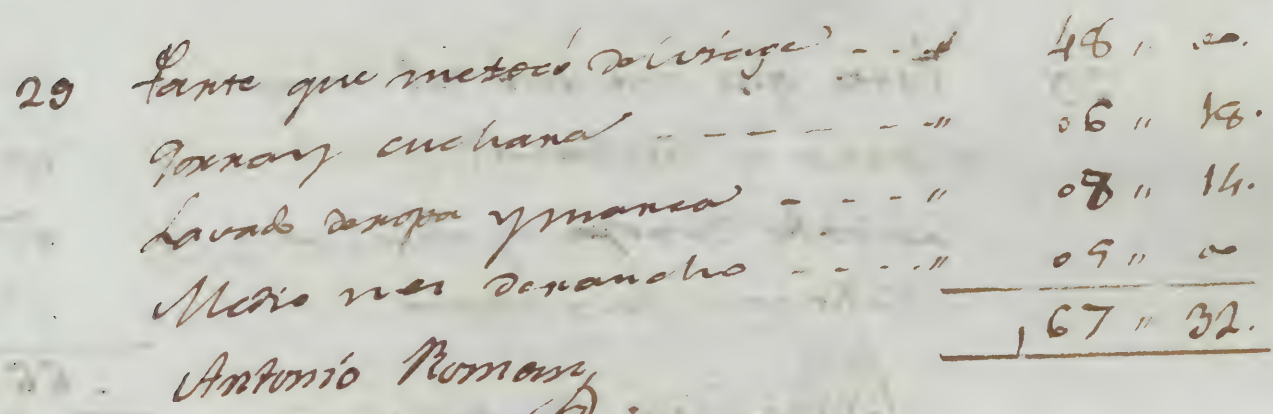 29 Parte que metocó delviage - - " 48 " 00.
Gorra y cuchara - - - - - - " 06 " 18.
Lavado deropa y marca - - - " 08 " 14.
Medio mes derancho - - - - " 05 " 00
67 " 32.
Antonio Roman